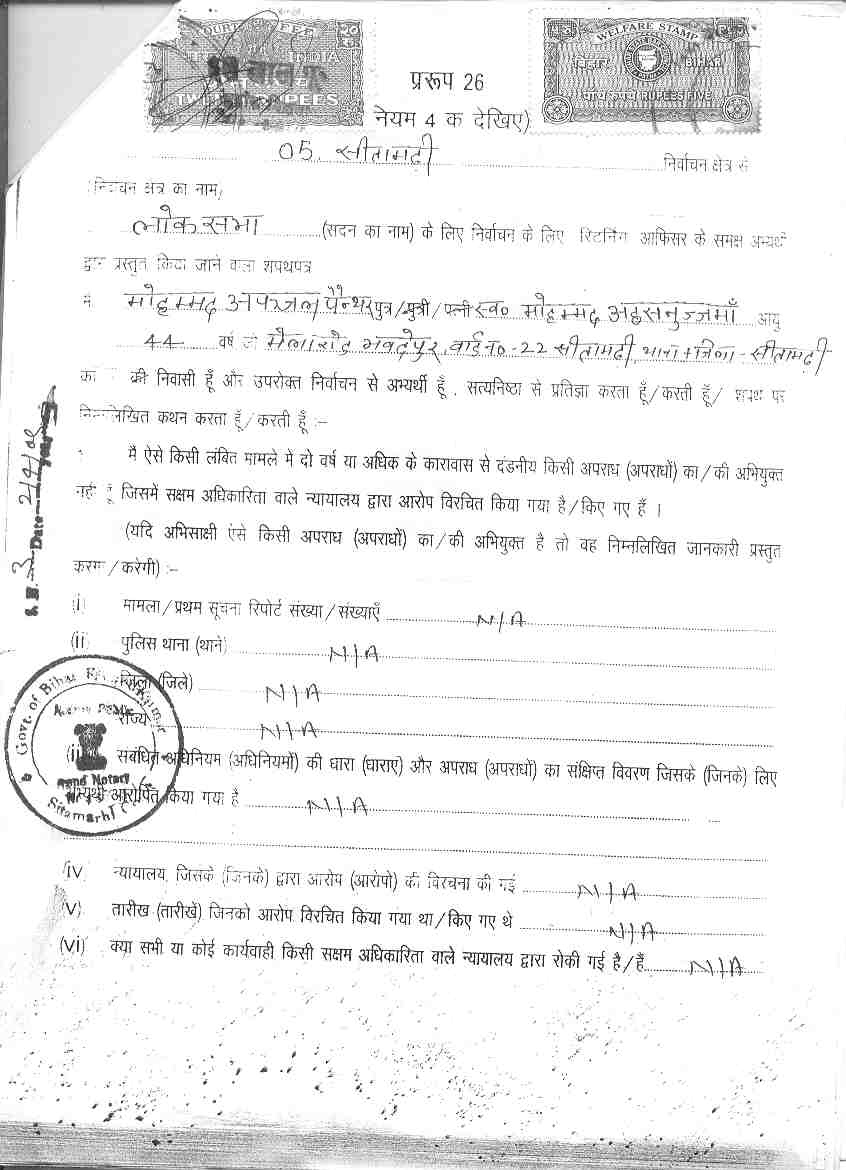 COURT FEE
INDIA
TWENTY RUPEES
WELFARE STAMP
बिहार BIHAR
पाँच रूपये RUPEES FIVE
प्ररूप 26
नेयम 4 क देखिए)
05. सीतामढ़ी निर्वाचन क्षेत्र से
निर्वाचन क्षेत्र का नाम,
लोक सभा (सदन का नाम) के लिए निर्वाचन के लिए रिटर्निंग आफिसर के समक्ष अभ्यर्थी
द्वारा प्रस्तुत किया जाने वाला शपथपत्र
मैं मोहम्मद अफजल पैन्थर पुत्र/पुत्री/पत्नी स्व० मोहम्मद अहसनुज्जमाँ आयु
44 वर्ष जो मेला रोड भवदेपुर, वार्ड न०-22 सीतामढ़ी, थाना + जिला - सीतामढ़ी
का की निवासी हूँ और उपरोक्त निर्वाचन से अभ्यर्थी हूँ, सत्यनिष्ठा से प्रतिज्ञा करता हूँ/करती हूँ/ शपथ पर
निम्नलिखित कथन करता हूँ/करती हूँ :-
मैं ऐसे किसी लंबित मामले में दो वर्ष या अधिक के कारावास से दंडनीय किसी अपराध (अपराधों) का/की अभियुक्त
नहीं हूँ जिसमें सक्षम अधिकारिता वाले न्यायालय द्वारा आरोप विरचित किया गया है/किए गए हैं ।
(यदि अभिसाक्षी ऐसे किसी अपराध (अपराधों) का/की अभियुक्त है तो वह निम्नलिखित जानकारी प्रस्तुत
करेगा/करेगी) :-
(i) मामला/प्रथम सूचना रिपोर्ट संख्या/संख्याएँ N/A
(ii) पुलिस थाना (थाने) N/A
जिला (जिले) N/A
राज्य N/A
(iii) संबंधित अधिनियम (अधिनियमों) की धारा (धाराएं) और अपराध (अपराधों) का संक्षिप्त विवरण जिसके (जिनके) लिए
अभ्यर्थी आरोपित किया गया है N/A
iv) न्यायालय, जिसके (जिनके) द्वारा आरोप (आरोपों) की विरचना की गई N/A
v) तारीख (तारीखें) जिनको आरोप विरचित किया गया था/किए गए थे N/A
(vi) क्या सभी या कोई कार्यवाही किसी सक्षम अधिकारिता वाले न्यायालय द्वारा रोकी गई है/हैं N/A
Date 2/4/09
Govt. of Bihar
Notary
Sitamarhi